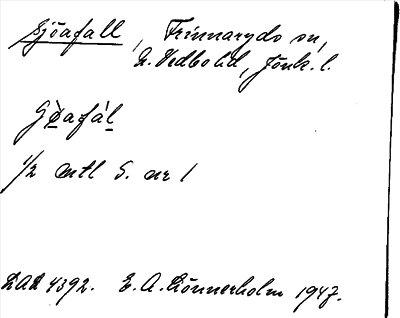 Sjöafall, Frinnaryds sn,
N. Vedbo hd, Jönk. l.
1/2 mtl S. nr 1
DAL 4392. E. A. Rönnerholm 1947.